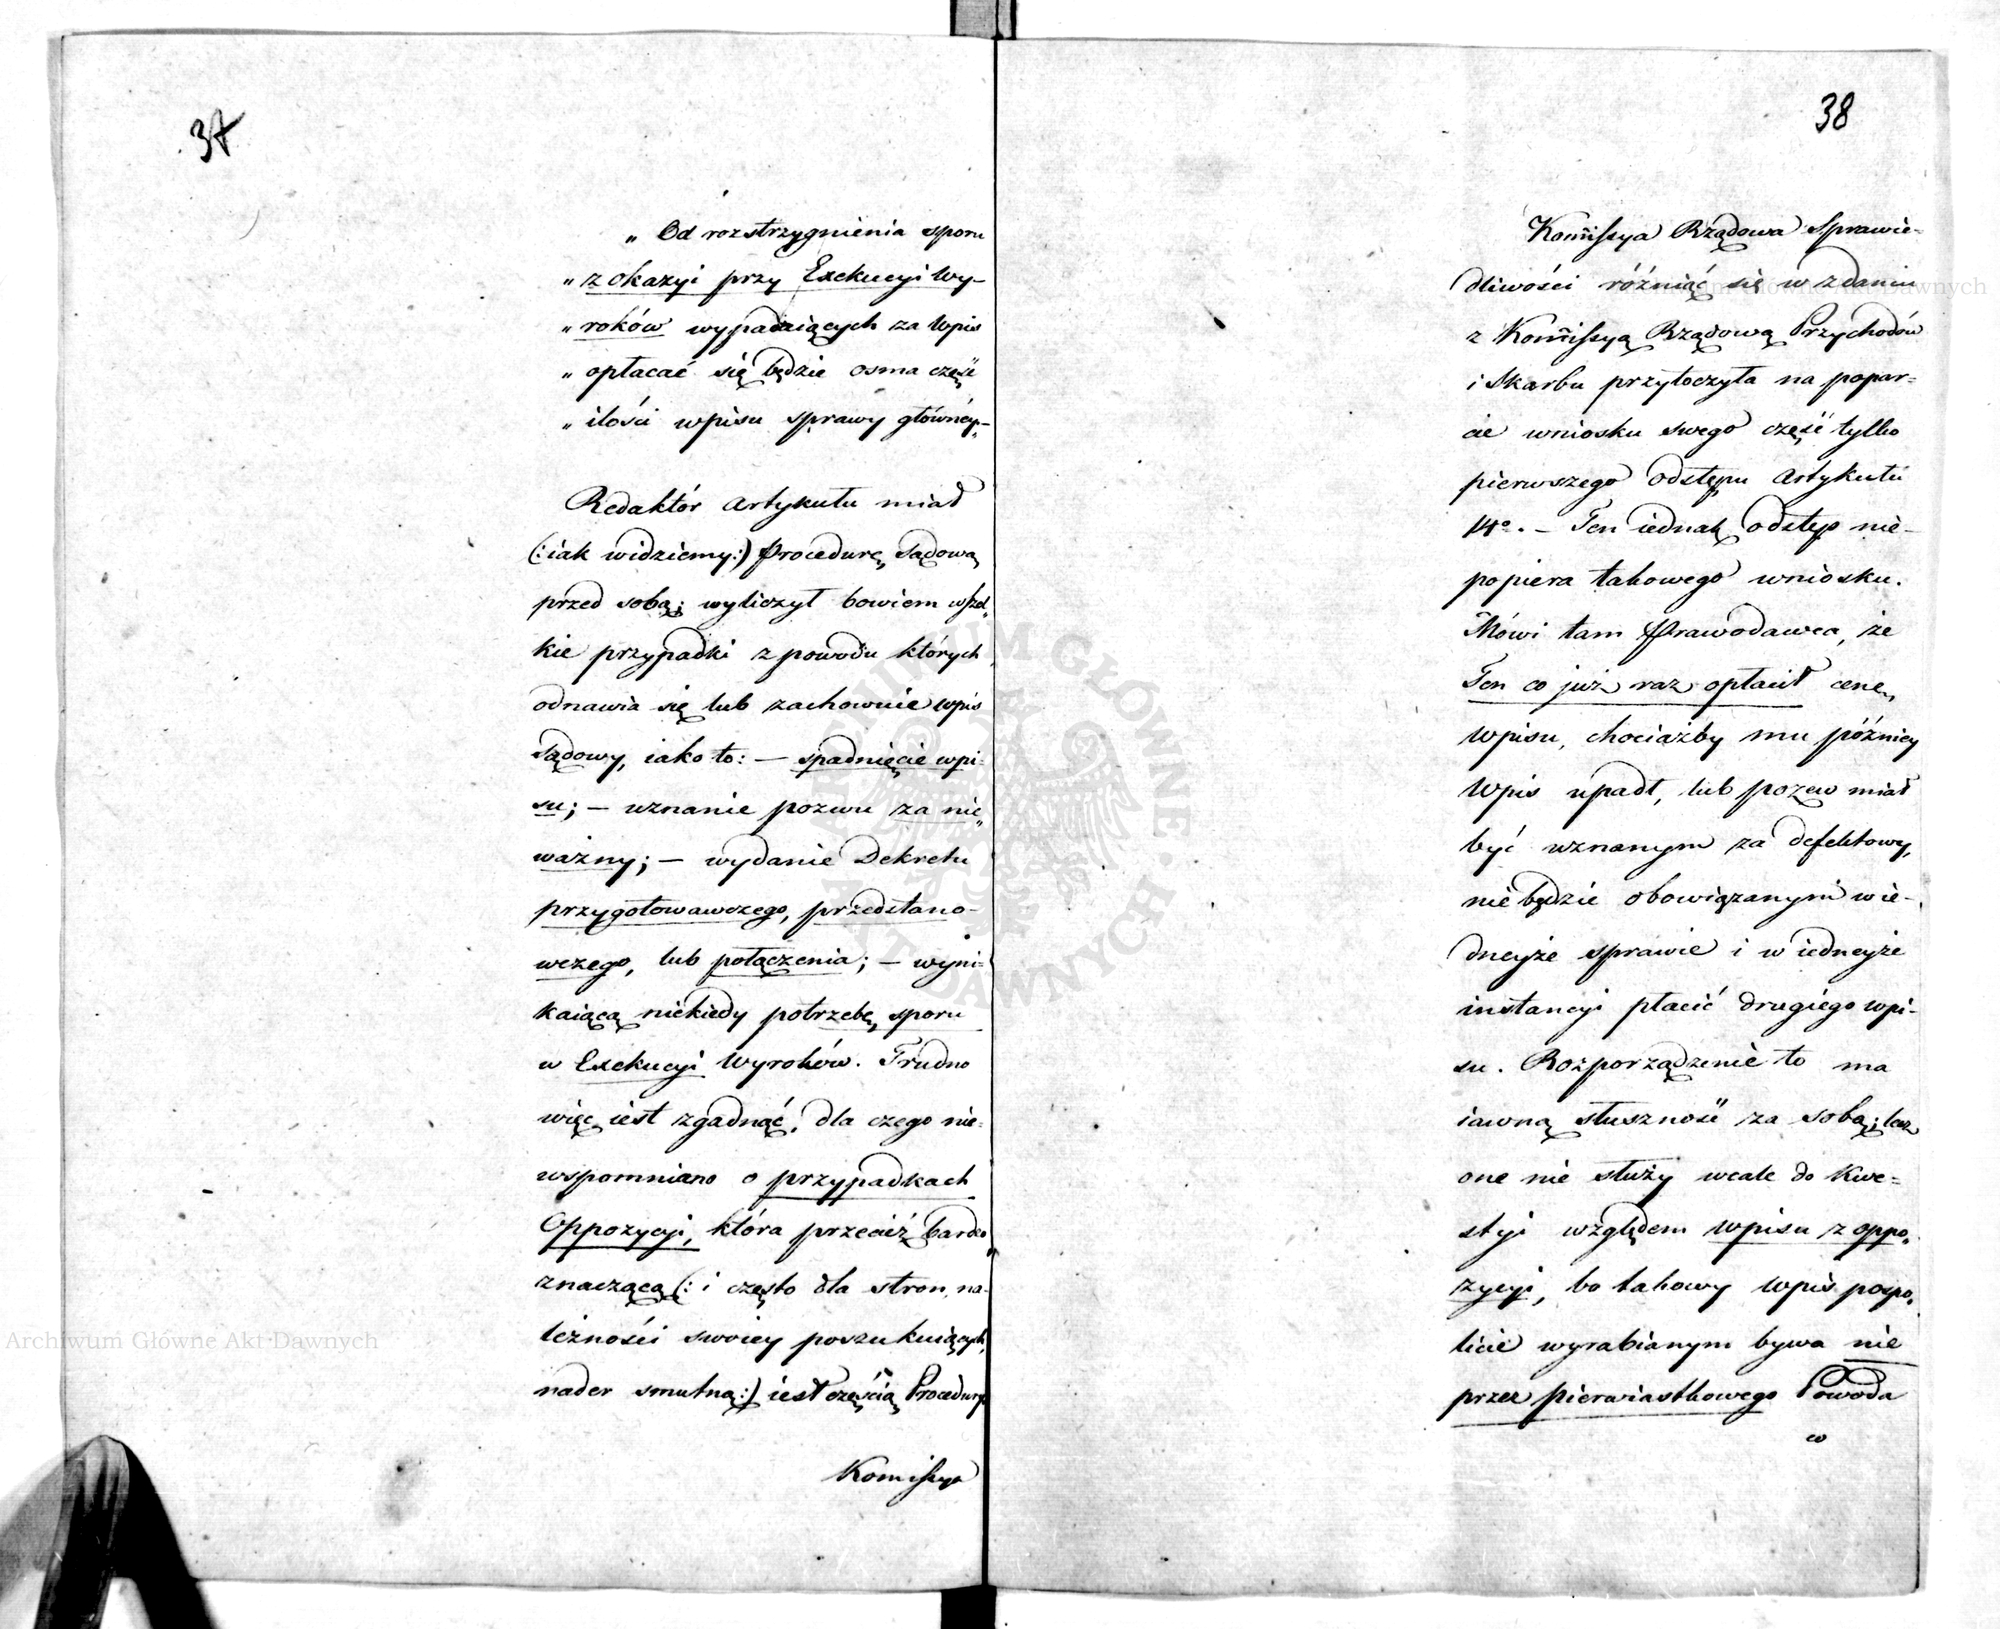 37
„ Od rozstrzygnienia sporu
„ z okazyi przy Exekucyi Wy-
„ roków wypadaiących za Wpis
„ opłacać się będzie osma część
„ ilości wpisu sprawy głównéy.–"
Redaktór Artykułu miał
(: iak widziemy :) Procedurę Sądową
przed sobą; wyliczył bowiem wszel„
kie przypadki z powodu których
odnawia się lub zachownie wpis
Sądowy, iako to: – spadnięcie wpi-
su; – uznanie pozwu za nie„
ważny; – wydanie Dekretu
przygotowawczego, przedstano-
wczego, lub połączenia; – wyni-
kaiącą niekiedy potrzebę sporu
w Exekucyi Wyroków. Trudno
więc iest zgadnąć, dla czego nie-
wspomniano o przypadkach
Oppozycyi, która przecież bardzo
znaczącą (: i często dla stron, na-
leżności swoiey poszukuiących,
nader smutną :) iest częścią Procedury.
Komissya
38
Kom̃issya Rządowa Sprawie-
dliwości różniąc się w zdaniu
z Kom̃issyą Rządową Przychodów
i Skarbu przytoczyła na popar-
cie wniosku swego część tylko
pierwszego odstępu Artykułu
14º. – Ten iednak odstęp nie-
popiera takowego wniosku.
Mówi tam Prawodawca, że
Ten co już raz opłacił cenę
wpisu, chociażby mu późniey
Wpis upadł, lub pozew miał
być uznanym za defektowy,
niebędzie obowiązanym w ie-
dneyże sprawie i w iedneyże
instancyi płacić drugiego wpi-
su. Rozporządzenie to ma
iawną słuszność za sobą; lecz
one nie służy wcale do kwe-
styi względem wpisu z oppo„
zycyi, bo takowy Wpis pospo„
licie wyrabianym bywa nie
przez pierwiastkowego Powoda
w
Archiwum Główne Akt Dawnych